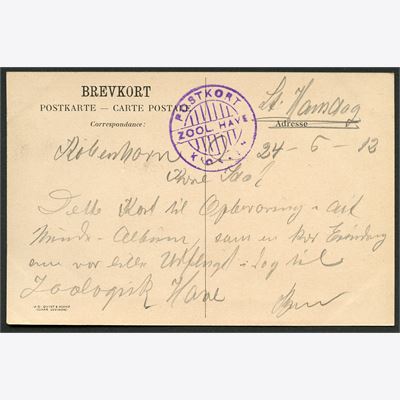 BREVKORT
POSTKARTE — CARTE POSTALE
Correspondance:
Adresse
POSTKORT
ZOOL. HAVE
St. Hansdag
København 24-6-12
Kære
Dette Kort til Opbevaring i dit
Minde-Album, som en kær Erindring
om vor lille Udflugt i Dag til
Zoologisk Have